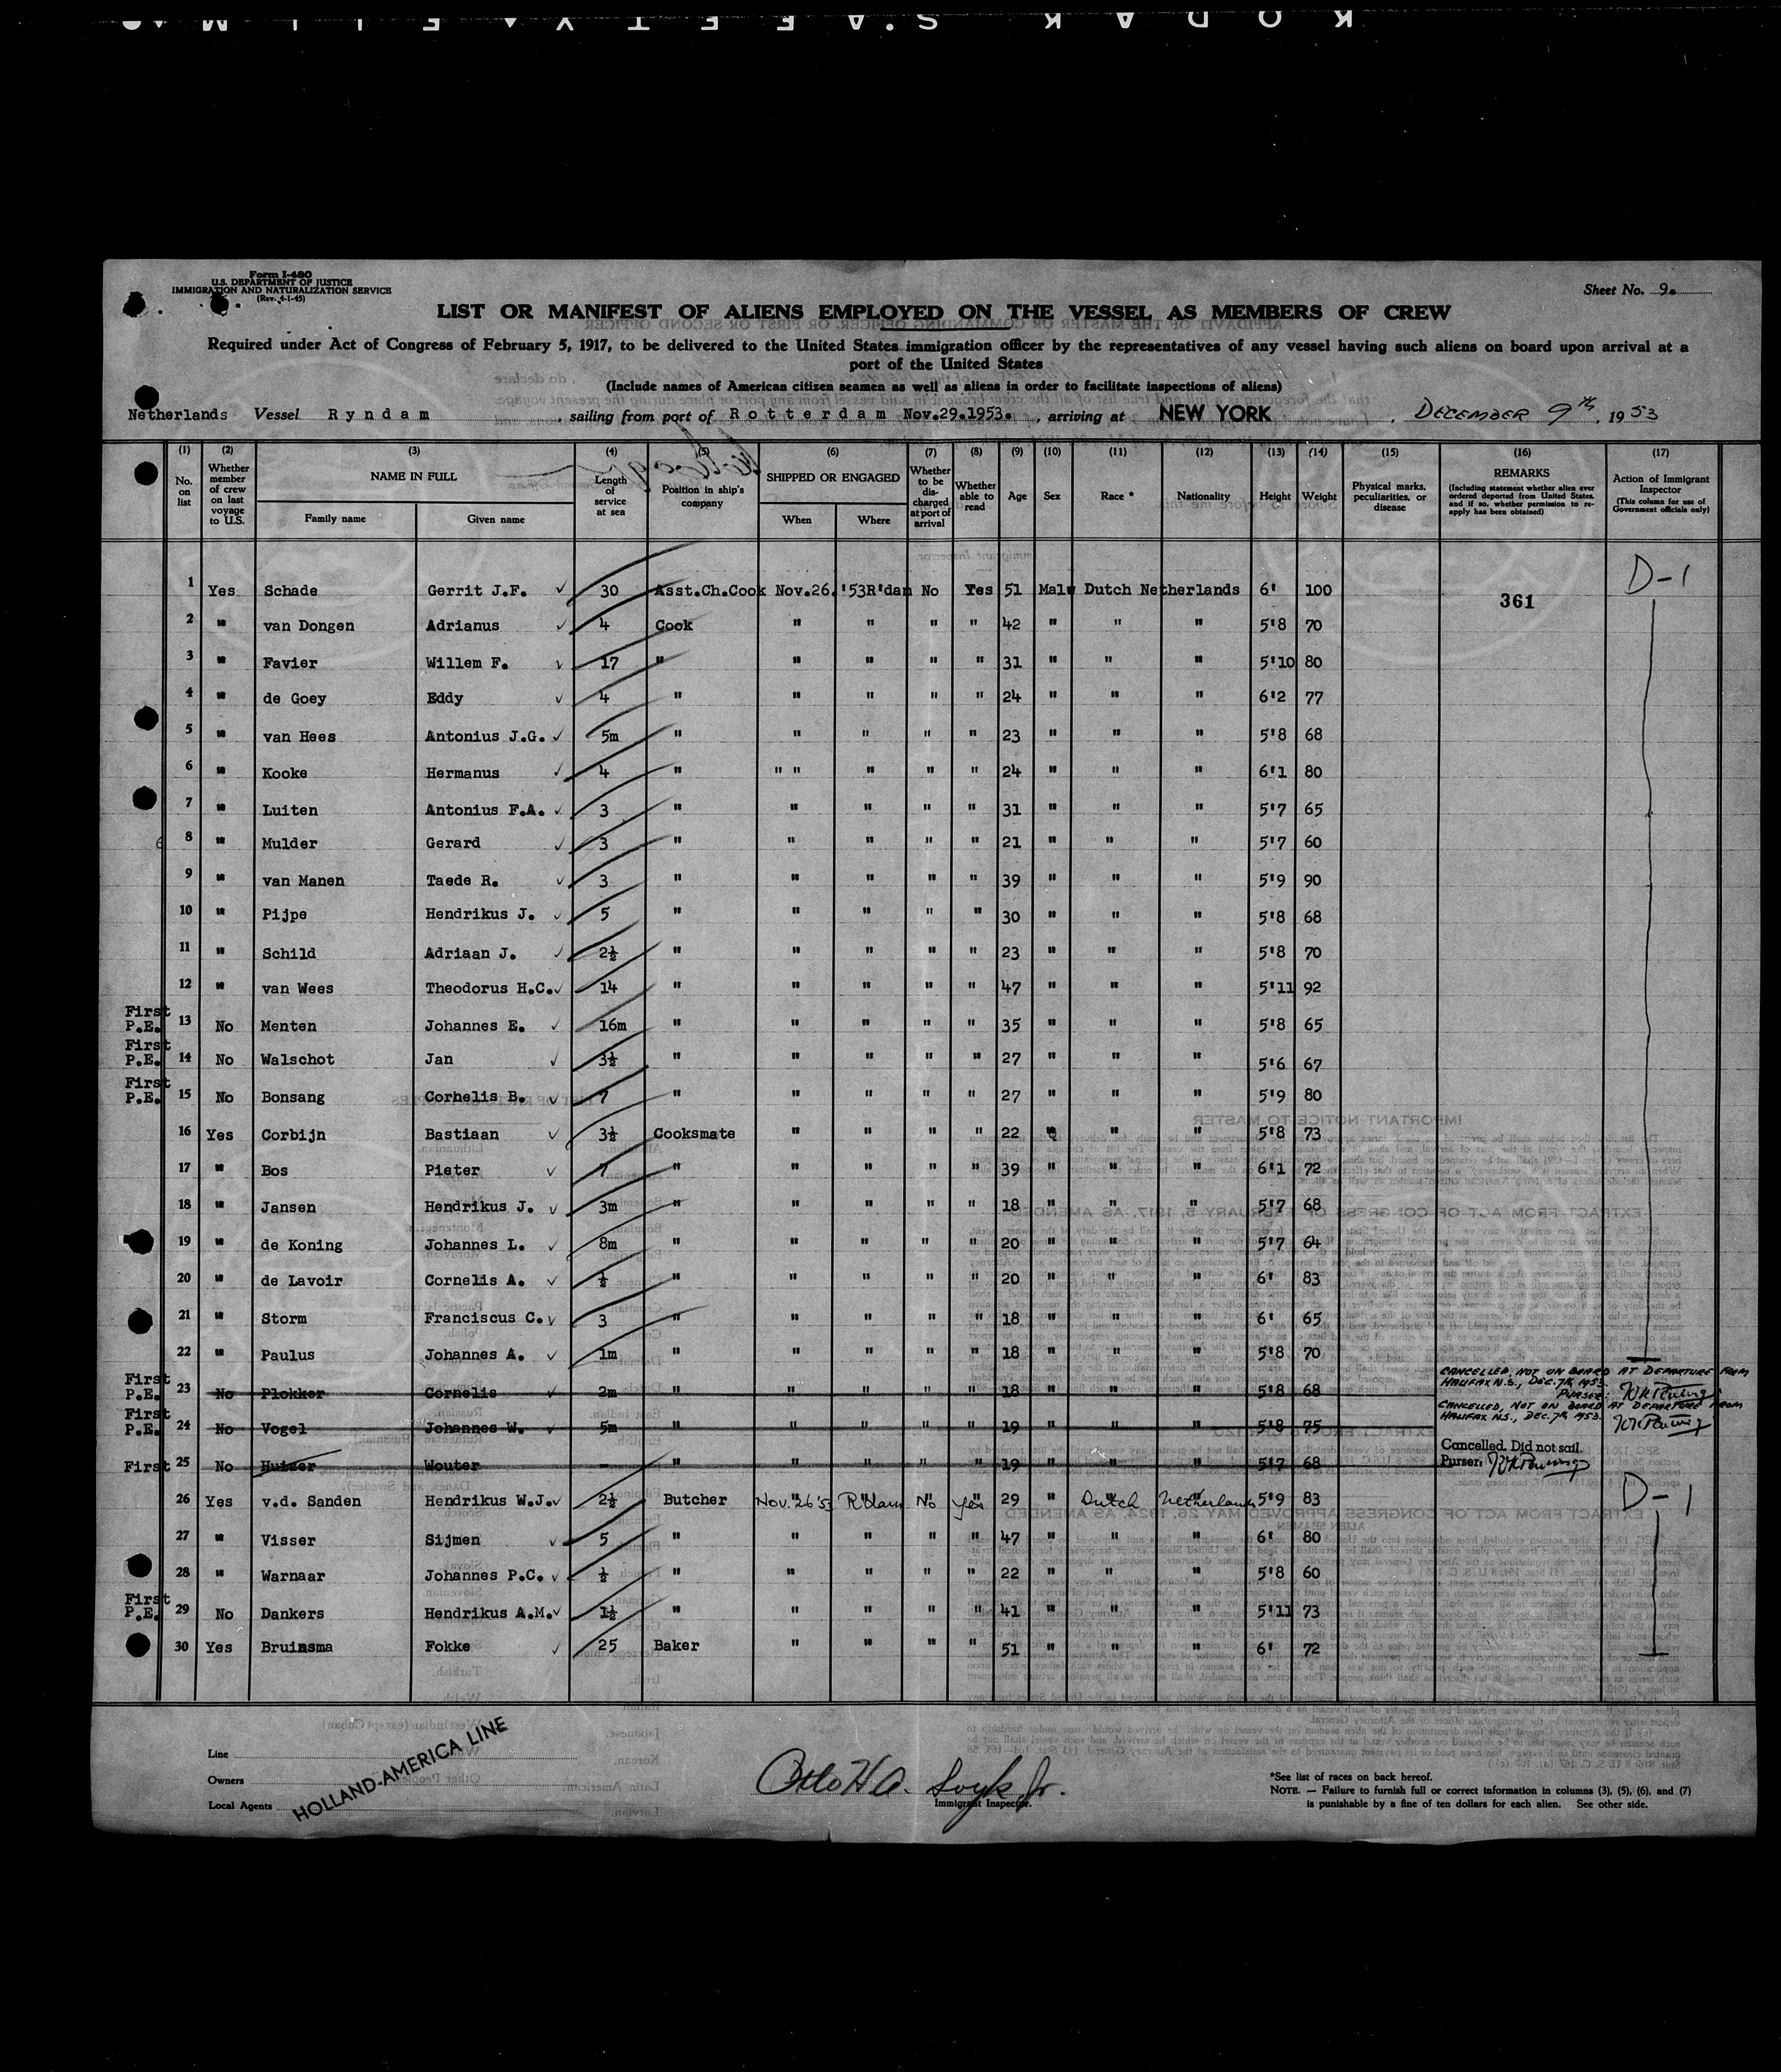 KODAK SAFETY FILM
Form I-480
U.S. DEPARTMENT OF JUSTICE
IMMIGRATION AND NATURALIZATION SERVICE
(Rev. 4-1-45)
Sheet No. 9.
LIST OR MANIFEST OF ALIENS EMPLOYED ON THE VESSEL AS MEMBERS OF CREW
Required under Act of Congress of February 5, 1917, to be delivered to the United States immigration officer by the representatives of any vessel having such aliens on board upon arrival at a
port of the United States
(Include names of American citizen seamen as well as aliens in order to facilitate inspections of aliens)
Netherlands Vessel Ryndam, sailing from port of Rotterdam Nov.29.1953., arriving at NEW YORK, DECEMBER 9th, 1953
(1) (2) (3) (4) (5) (6) (7) (8) (9) (10) (11) (12) (13) (14) (15) (16) (17)
No. on list
Whether member of crew on last voyage to U.S.
NAME IN FULL
Family name Given name
Length of service at sea
Position in ship's company
SHIPPED OR ENGAGED
When Where
Whether to be discharged at port of arrival
Whether able to read
Age
Sex
Race *
Nationality
Height
Weight
Physical marks, peculiarities, or disease
REMARKS
(Including statement whether alien ever ordered deported from United States, and if so, whether permission to re-apply has been obtained)
Action of Immigrant Inspector
(This column for use of Government officials only)
1 Yes Schade Gerrit J.F. 30 Asst.Ch.Cook Nov.26.'53 R'dam No Yes 51 Male Dutch Netherlands 6' 100 361 D-1
2 " van Dongen Adrianus 4 Cook " " " " 42 " " " 5'8 70
3 " Favier Willem F. 17 " " " " " 31 " " " 5'10 80
4 " de Goey Eddy 4 " " " " " 24 " " " 6'2 77
5 " van Hees Antonius J.G. 5m " " " " " 23 " " " 5'8 68
6 " Kooke Hermanus 4 " " " " " " 24 " " " 6'1 80
7 " Luiten Antonius F.A. 3 " " " " " 31 " " " 5'7 65
8 " Mulder Gerard 3 " " " " " 21 " " " 5'7 60
9 " van Manen Taede R. 3 " " " " " 39 " " " 5'9 90
10 " Pijpe Hendrikus J. 5 " " " " " 30 " " " 5'8 68
11 " Schild Adriaan J. 2½ " " " " " 23 " " " 5'8 70
12 " van Wees Theodorus H.C. 14 " " " " " 47 " " " 5'11 92
First P.E. 13 No Menten Johannes E. 16m " " " " " 35 " " " 5'8 65
First P.E. 14 No Walschot Jan 3½ " " " " " 27 " " " 5'6 67
First P.E. 15 No Bonsang Cornelis B. 7 " " " " " 27 " " " 5'9 80
16 Yes Corbijn Bastiaan 3½ Cooksmate " " " " 22 " " " 5'8 73
17 " Bos Pieter 7 " " " " " 39 " " " 6'1 72
18 " Jansen Hendrikus J. 3m " " " " " 18 " " " 5'7 68
19 " de Koning Johannes L. 8m " " " " " 20 " " " 5'7 64
20 " de Lavoir Cornelis A. ½ " " " " " 20 " " " 6' 83
21 " Storm Franciscus C. 3 " " " " " 18 " " " 6' 65
22 " Paulus Johannes A. 1m " " " " " 18 " " " 5'8 70
First P.E. 23 No Plokker Cornelis 2m " " " " " 18 " " " 5'8 68 CANCELLED, NOT ON BOARD AT DEPARTURE FROM HALIFAX N.S., DEC. 7th, 1953. PURSER:
First P.E. 24 No Vogel Johannes W. 5m " " " " " 19 " " " 5'8 75 CANCELLED, NOT ON BOARD AT DEPARTURE FROM HALIFAX N.S., DEC. 7th, 1953.
First 25 No Huizer Wouter - " " " " " 19 " " " 5'7 68 Cancelled. Did not sail. Purser:
26 Yes v.d. Sanden Hendrikus W.J. 2½ Butcher Nov. 26 '53 R'dam No Yes 29 " Dutch Netherlands 5'9 83 D-1
27 " Visser Sijmen 5 " " " " " 47 " " " 6' 80
28 " Warnaar Johannes P.C. ½ " " " " " 22 " " " 5'8 60
First P.E. 29 No Dankers Hendrikus A.M. 1½ " " " " " 41 " " " 5'11 73
30 Yes Bruinsma Fokke 25 Baker " " " " 51 " " " 6' 72
Line
Owners
Local Agents
HOLLAND-AMERICA LINE
Immigrant Inspector.
*See list of races on back hereof.
NOTE. — Failure to furnish full or correct information in columns (3), (5), (6), and (7)
is punishable by a fine of ten dollars for each alien. See other side.